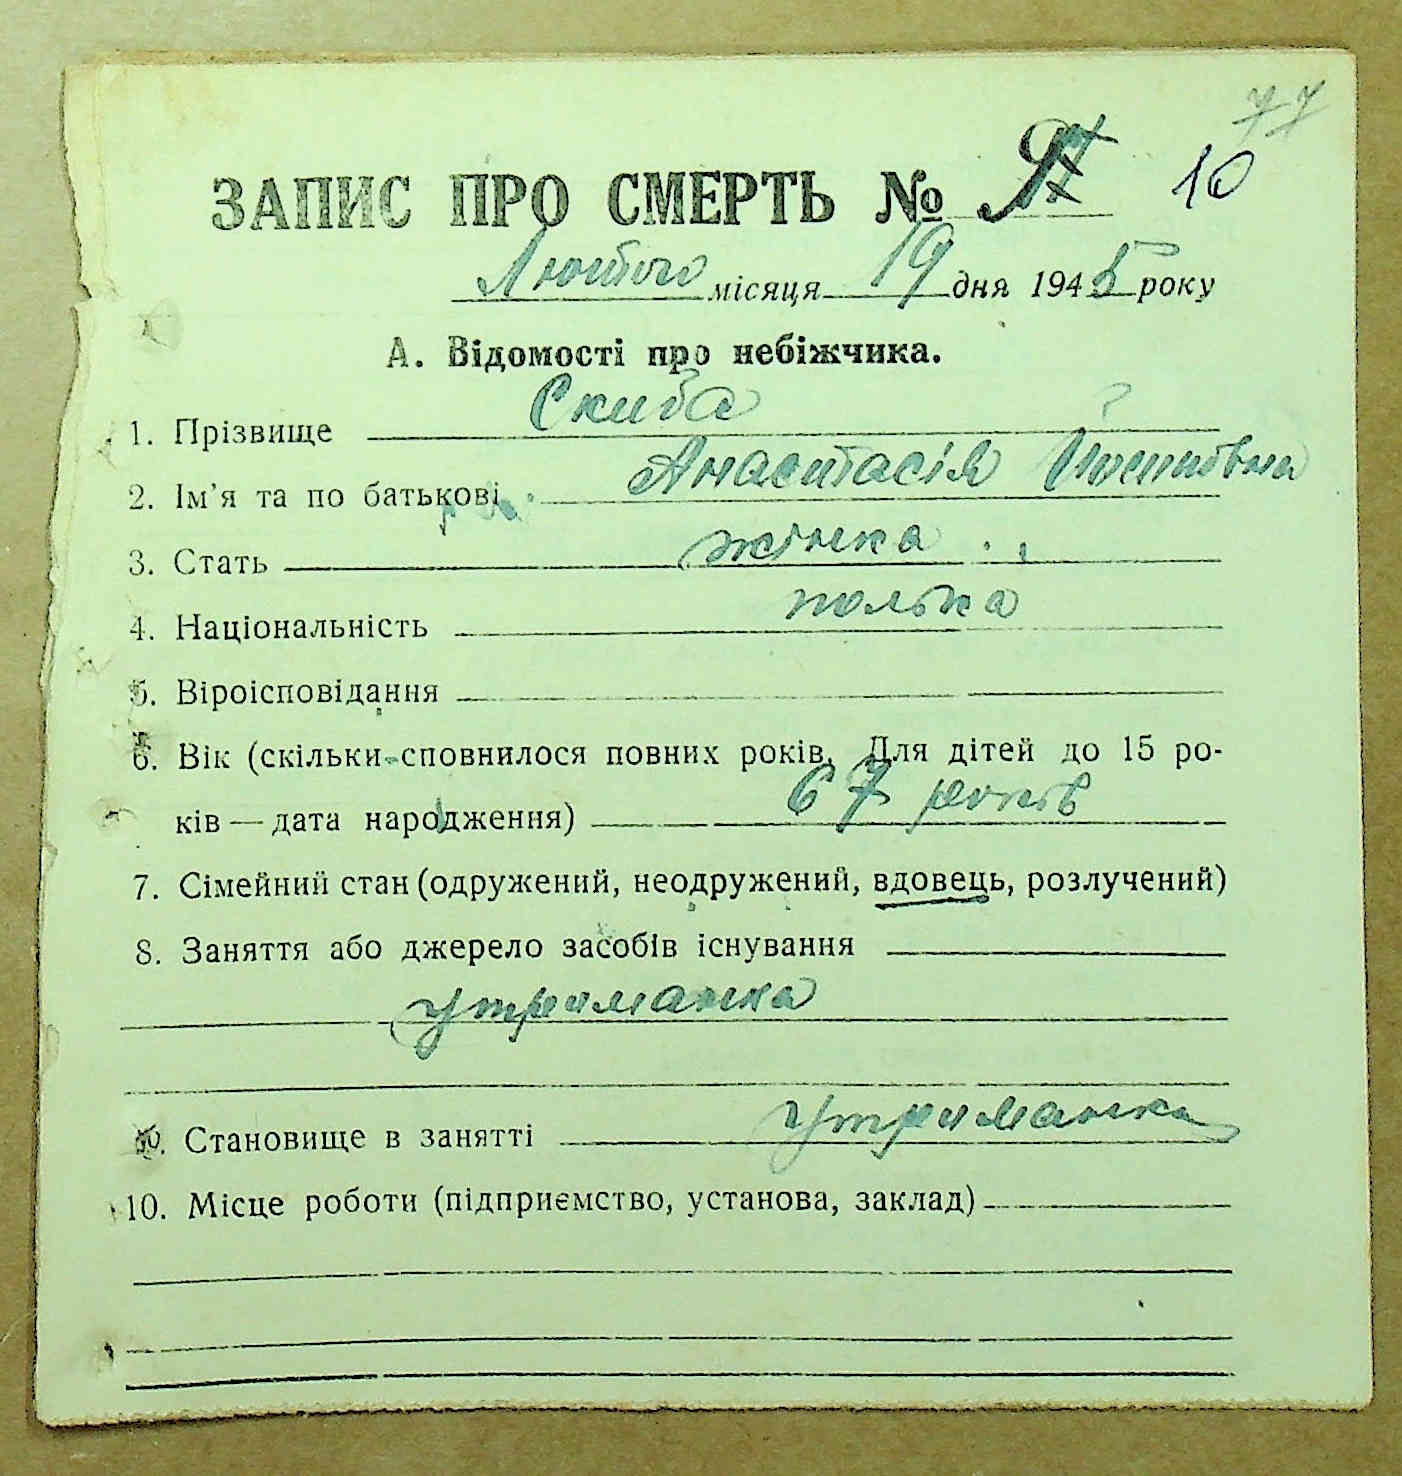 77
ЗАПИС ПРО СМЕРТЬ № 10
Лютого місяця 19 дня 1945 року
А. Відомості про небіжчика.
1. Прізвище Скиба
2. Ім'я та по батькові Анастасія
3. Стать жінка
4. Національність полька
5. Віроісповідання
6. Вік (скільки сповнилося повних років. Для дітей до 15 ро-
ків — дата народження) 67 років
7. Сімейний стан (одружений, неодружений, вдовець, розлучений)
8. Заняття або джерело засобів існування
утриманка
9. Становище в занятті утриманка
10. Місце роботи (підприємство, установа, заклад)